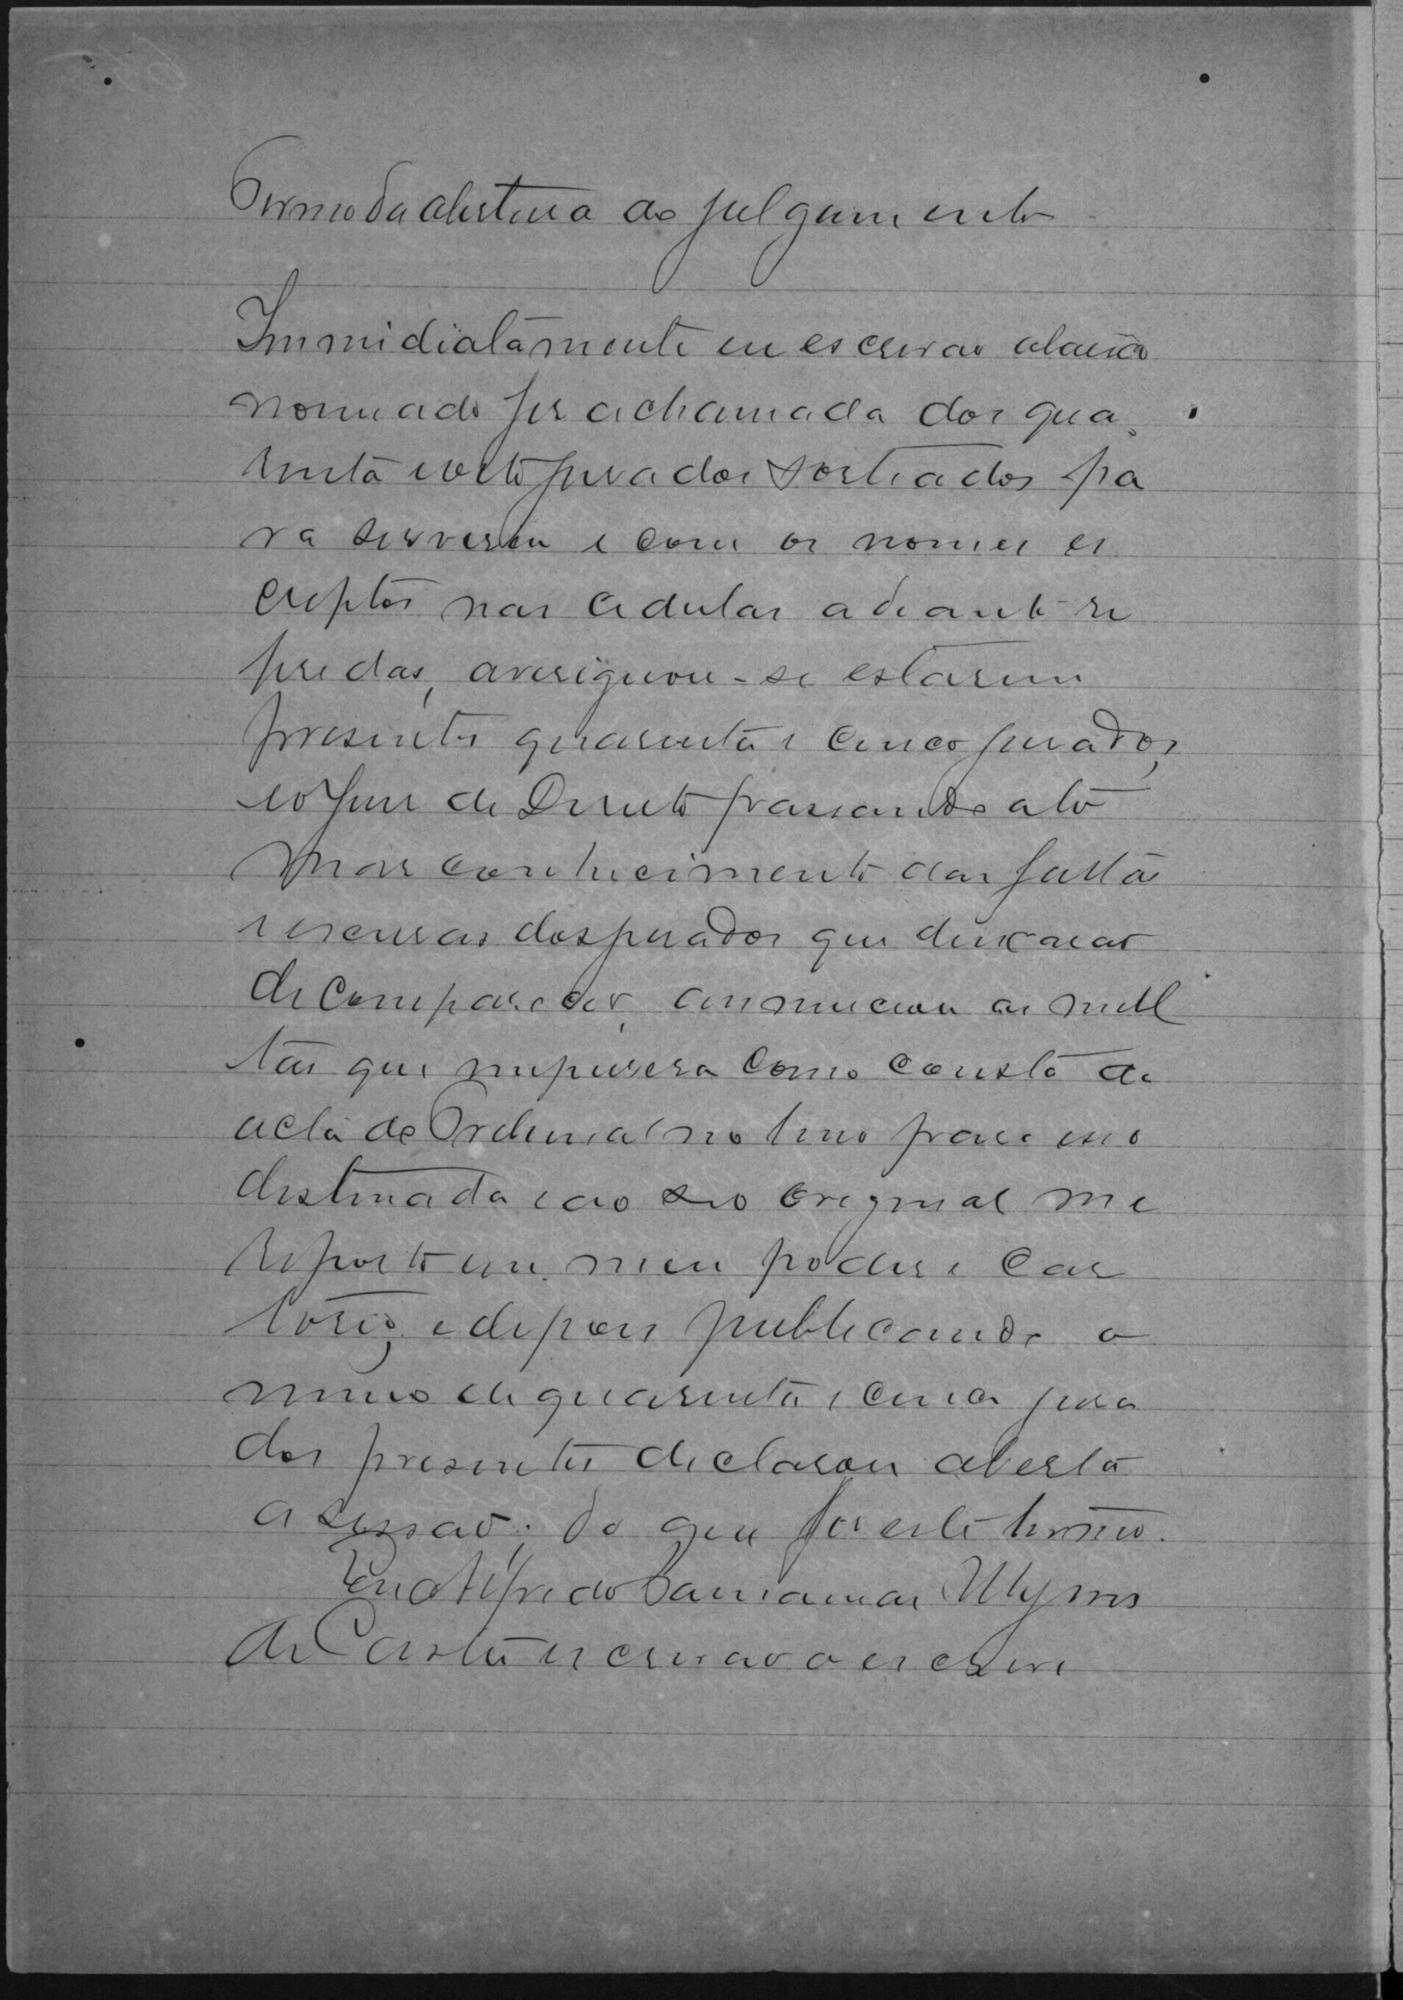 Termo da abertura do julgamento
Immidiatamente eu escrivão abaixo
nomeado fis a chamada dos qua
renta e oito jurados sorteados pa
ra servirem e com os nomes es
criptos nas cedulas adeante re
feridas, averiguou-se estarem
presentes quarenta e cinco jurados,
e o Juiz de Direito passando a to
mar conhecimento das faltas
e escusas dos jurados que deixarão
de comparecer, annunciou as mul
tas que impusera como consta da
acta do
destinada e ao seo original me
reporto em meu poder e car
torio, e depois publicando o
numero de quarenta e cinco jura
dos presentes declarou aberta
a sessão; do que fis este termo.
Eu Alfredo Ulysses
de Costa escrivão o escrevi